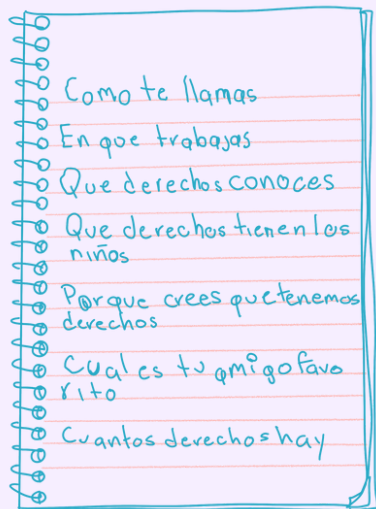 Como te llamas
En que trabajas
Que derechos conoces
Que derechos tienen los
niños
Porque crees que tenemos
derechos
Cual es tu amigo favo
rito
Cuantos derechos hay